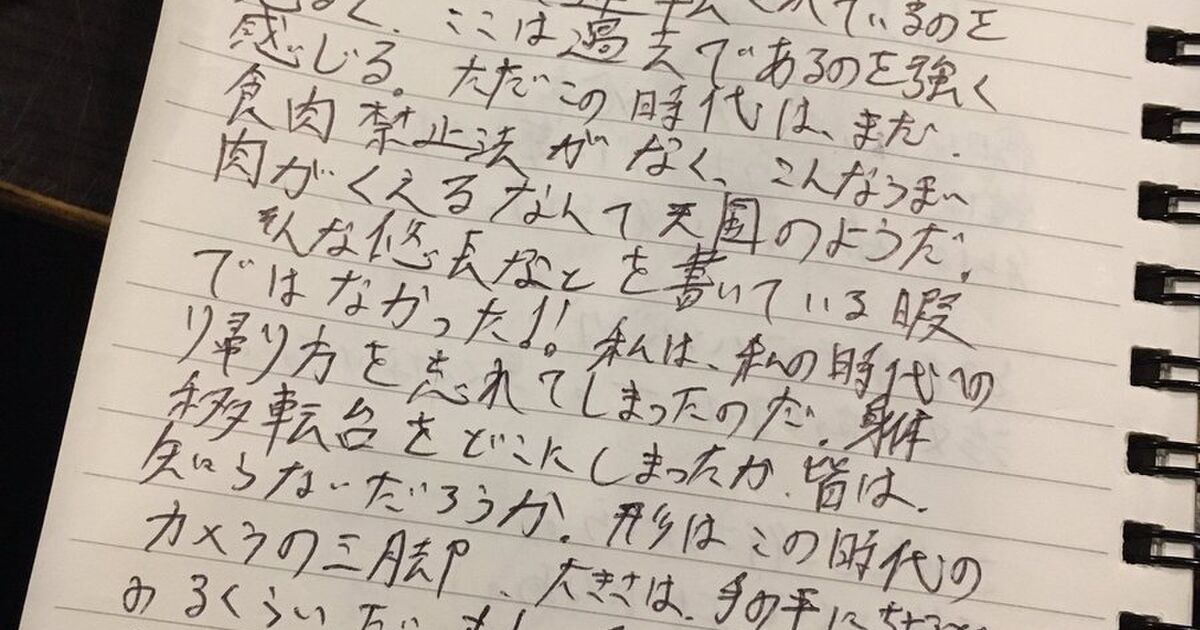 ているのを
なく、ここは過去であるのを強く
感じる。ただこの時代は、まだ、
食肉禁止法がなく、こんなうまい
肉がくえるなんて天国のようだ。
そんな悠長なことを書いている暇
ではなかった!! 私は、私の時代への
帰り方を忘れてしまったのだ。身体
移転台をどこにしまったか、皆は、
知らないだろうか。形はこの時代の
カメラの三脚、大きさは、手の平に
のるくらいだ